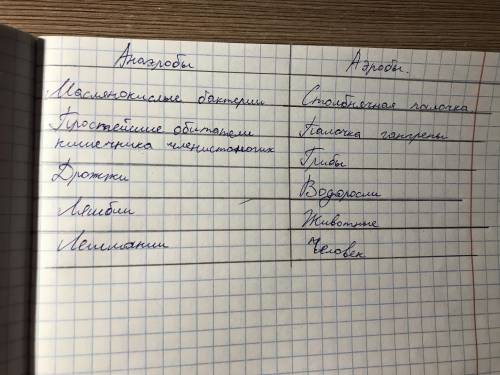 Анаэробы
Аэробы.
Маслянокислые бактерии
Столбнячная палочка
Простейшие обитатели
кишечника членистоногих
Палочка гангрены
Грибы
Дрожжи
Водоросли
Лямблии
Животные
Лейшмании
Человек